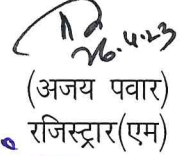 26.4.23
(अजय पवार)
रजिस्ट्रार(एम)